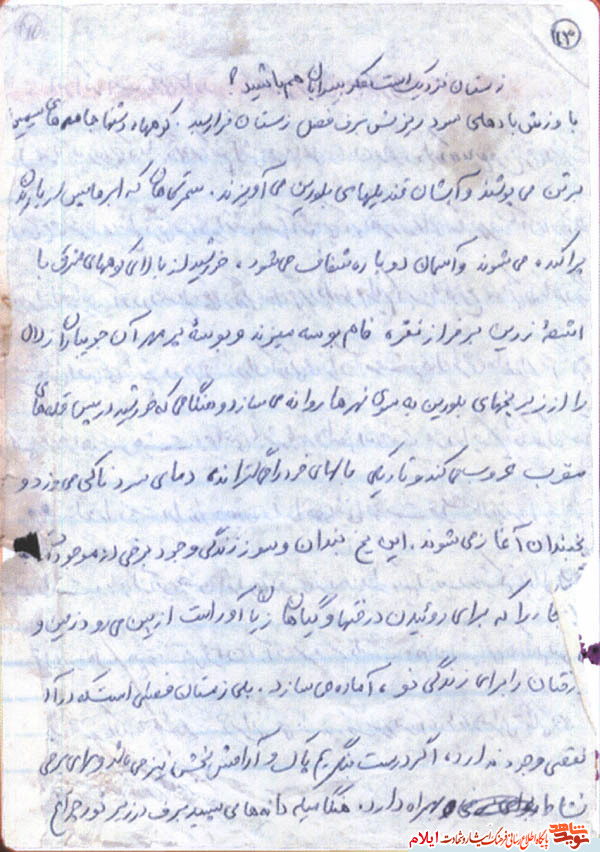 ۱۳
زمستان نزدیک است فکر بینوایان هم باشید!
با وزش بادهای سرد و ریزش برف فصل زمستان فرا رسید. کوهها و دشتها جامه های سیمین
برتن می پوشند و آبشان قندیلهای بلورین می آویزند.
پراکنده می شوند و آسمان دوباره شفاف می شود، خورشید از بالای کوههای شرقی با
اشعهٔ زرین بر فراز نقره فام بوسه میزند و بوسهٔ پر مهر آن جویباران زلال
را از زیر یخهای بلورین به سوی نهرها روانه می سازد و هنگامی که خورشید در پس قله های
مغرب غروب می کند و تاریکی بالهای خود را می گستراند دمای سردناکی می وزد و
یخبندان آغاز می شوند. این یخ بندان و سوز زندگی وجود برخی از موجودات
را که برای روئیدن درختها و گیاهان زیان آور است از بین می رود زمین و
را برای زندگی نو، آماده می سازد. بلی زمستان فصلی است که در آن
نقصی وجود ندارد، اگر درست بنگریم پاک و آرامش بخش نیز می باشد و برای برخی
نشاط همراه دارد. هنگامیکه دانه های سپید برف در زیر نور چراغ
نوید شاهد
پایگاه اطلاع رسانی فرهنگ ایثار و شهادت ایلام